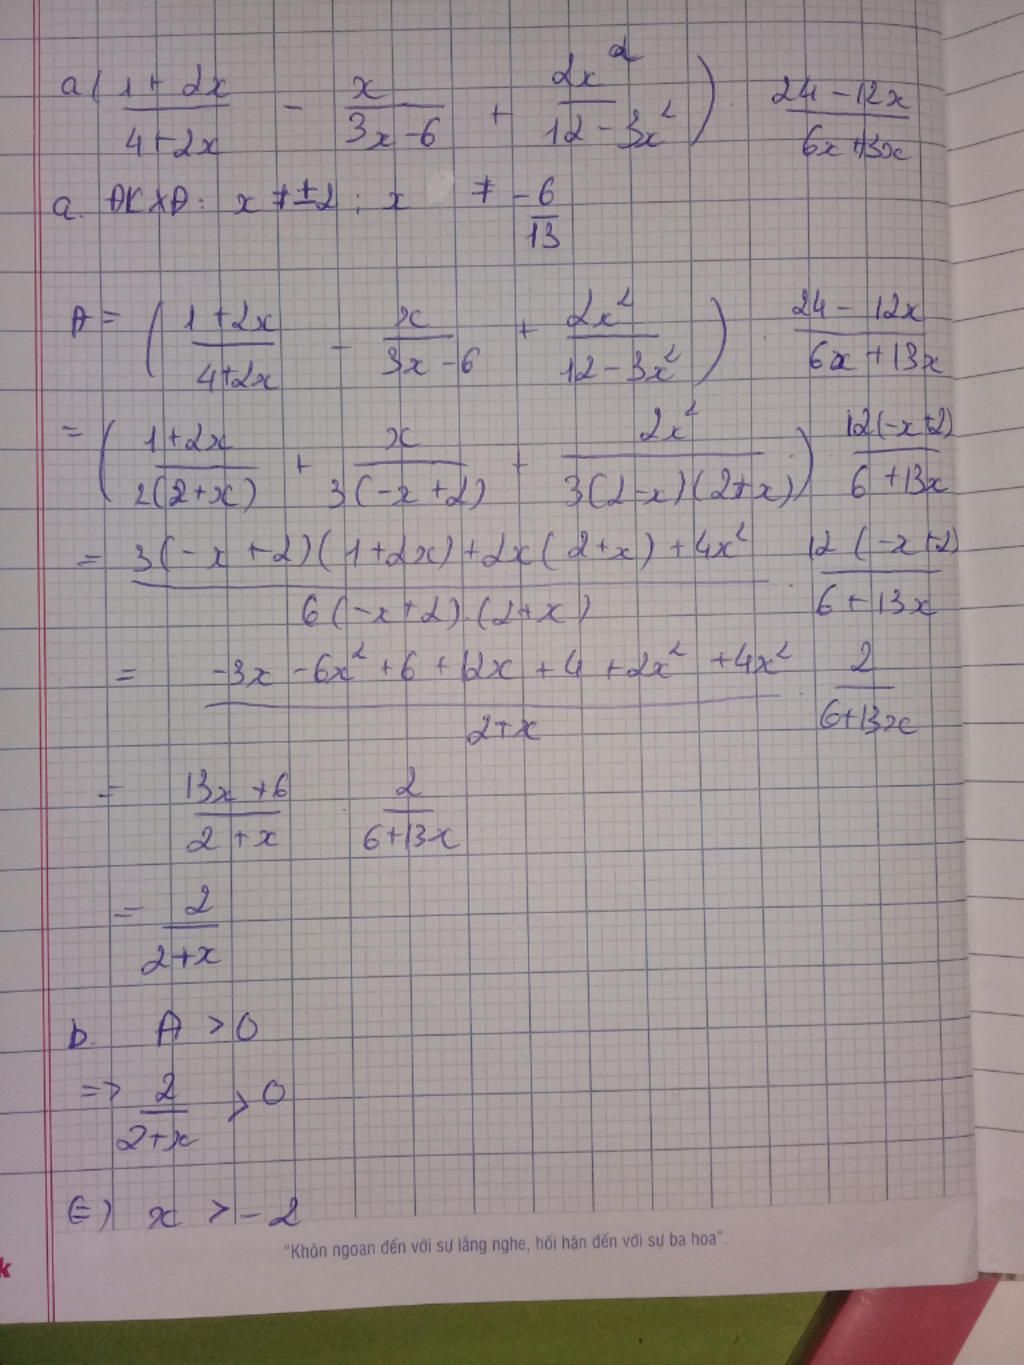 a ( 1 + 2x / 4 + 2x - x / 3x - 6 + 2x² / 12 - 3x² ) 24 - 12x / 6x + 13x
a. ĐKXĐ: x ≠ ± 2 ; x ≠ - 6 / 13
A = ( 1 + 2x / 4 + 2x - x / 3x - 6 + 2x² / 12 - 3x² ) 24 - 12x / 6x + 13x
= ( 1 + 2x / 2(2+x) + x / 3(-x+2) + 2x² / 3(2-x)(2+x) ) 12(-x+2) / 6 + 13x
= 3(-x+2)(1+2x) + 2x(2+x) + 4x² / 6(-x+2).(2+x) . 12(-x+2) / 6 + 13x
= -3x - 6x² + 6 + 12x + 4 + 2x² + 4x² / 2+x . 2 / 6+13x
= 13x + 6 / 2 + x . 2 / 6+13x
= 2 / 2+x
b. A > 0
=> 2 / 2+x > 0
⇔ x > -2
"Khôn ngoan đến với sự lắng nghe, hối hận đến với sự ba hoa".
k